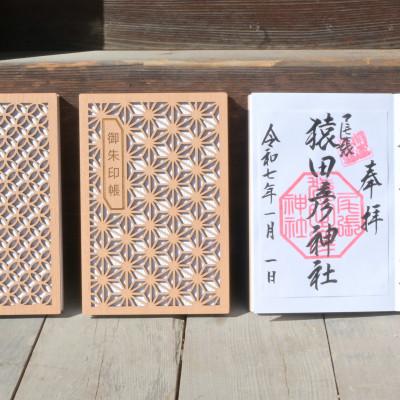 御朱印帳
奉拝
尾張
猿田彦神社
令和七年一月一日
尾張
神社